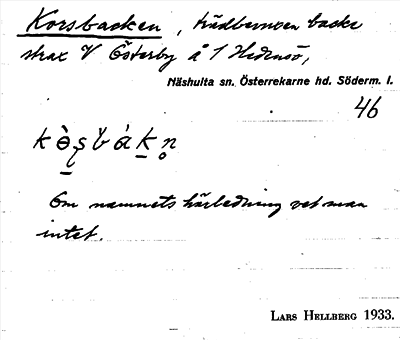 Korsbacken, trädbevuxen backe
strax V Österby å 1 Hedensö,
Näshulta sn. Österrekarne hd. Söderm. l.
46
Om namnets härledning vet man
intet.
LARS HELLBERG 1933.